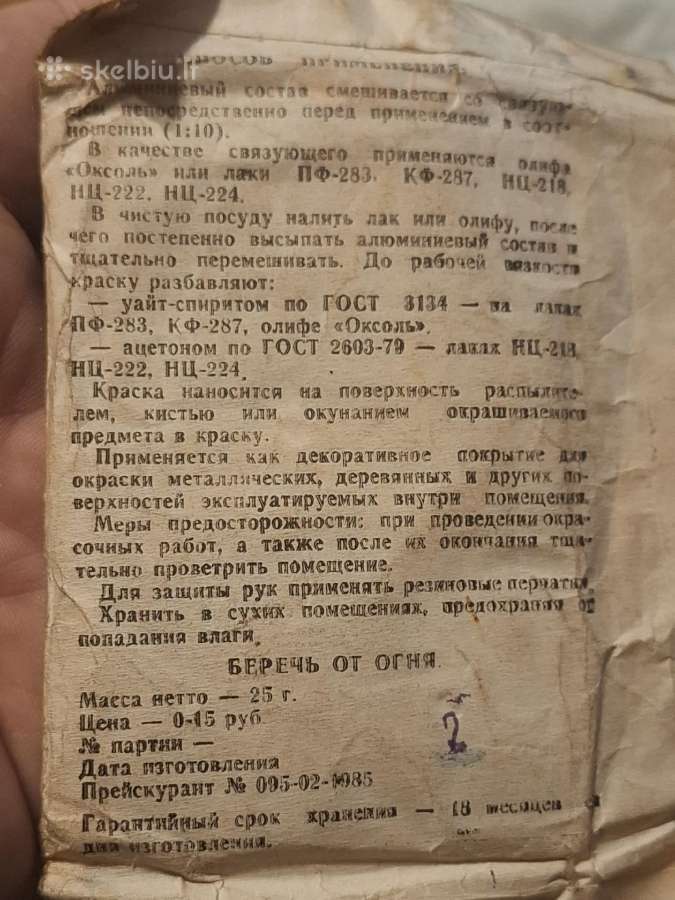 skelbiu.lt
СПОСОБ ПРИМЕНЕНИЯ.
Алюминиевый состав смешивается со связую-
щем непосредственно перед применением в соот-
ношении (1:10).
В качестве связующего применяются олифа
«Оксоль» или лаки ПФ-283, КФ-287, НЦ-218,
НЦ-222, НЦ-224.
В чистую посуду налить лак или олифу, после
чего постепенно высыпать алюминиевый состав и
тщательно перемешивать. До рабочей вязкости
краску разбавляют:
— уайт-спиритом по ГОСТ 3134 — на лаках
ПФ-283, КФ-287, олифе «Оксоль»,
— ацетоном по ГОСТ 2603-79 — лаках НЦ-218,
НЦ-222, НЦ-224.
Краска наносится на поверхность распылите-
лем, кистью или окунанием окрашиваемого
предмета в краску.
Применяется как декоративное покрытие для
окраски металлических, деревянных и других по-
верхностей эксплуатируемых внутри помещения.
Меры предосторожности: при проведении окра-
сочных работ, а также после их окончания тща-
тельно проветрить помещение.
Для защиты рук применять резиновые перчатки.
Хранить в сухих помещениях, предохраняя от
попадания влаги.
БЕРЕЧЬ ОТ ОГНЯ
Масса нетто — 25 г.
Цена — 0-15 руб.
№ партии —
2
Дата изготовления
Прейскурант № 095-02-1985
Гарантийный срок хранения — 18 месяцев со
дня изготовления.